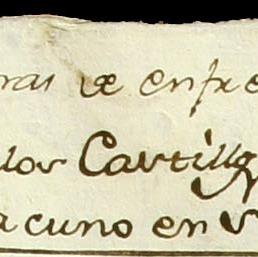 ras de enfre
los Castillo
acuno en